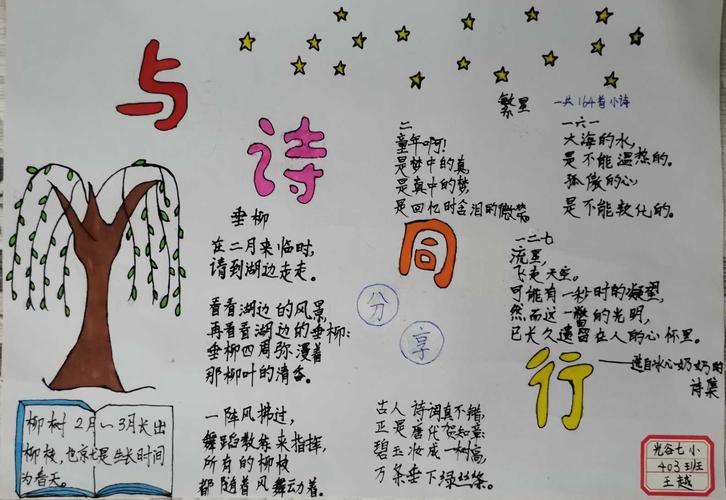 与诗同行
分享
垂柳
在二月来临时,
请到湖边走走。
看看湖边的风景,
再看看湖边的垂柳:
垂柳四周弥漫着
那柳叶的清香。
一阵风拂过,
舞蹈教练来指挥,
所有的柳枝
都随着风舞动着。
古人诗词真不错,
正是唐代贺知章:
碧玉妆成一树高,
万条垂下绿丝条。
繁星 一共164首小诗
二
童年啊!
是梦中的真,
是真中的梦,
是回忆时含泪的微笑。
一六一
大海的水,
是不能温热的。
孤傲的心,
是不能软化的。
一二七
流星,
飞走天空。
可能有一秒时的凝望,
然而这一瞥的光明,
已长久遗留在人的心怀里。
——选自冰心奶奶的
诗集
柳树2月~3月长出
柳枝,也就是生长时间
为春天。
光谷七小
403班
王越